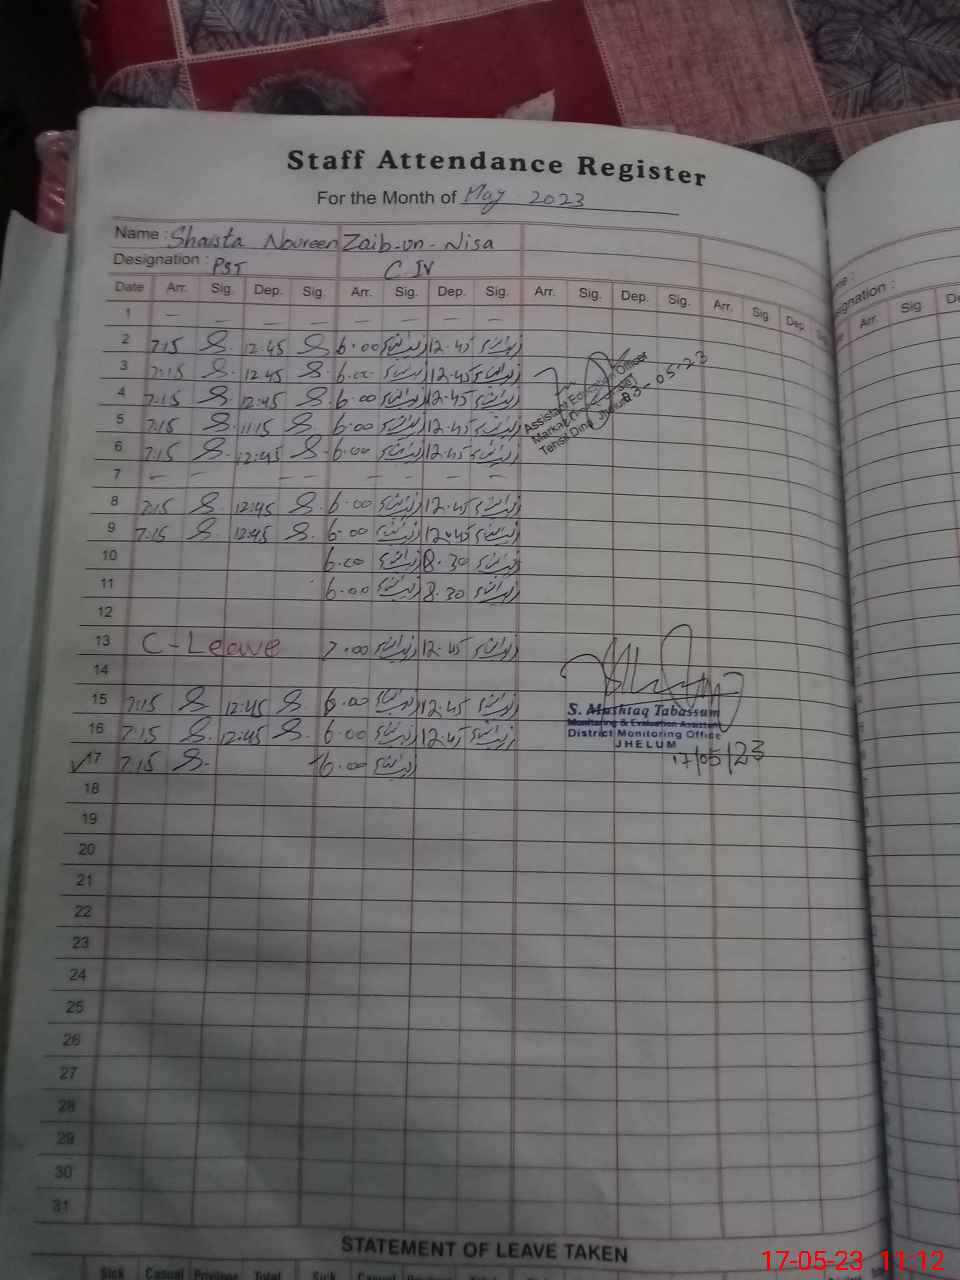 Staff Attendance Register
For the Month of May 2023
Name : Shaista Noureen Zaib-un-Nisa
Designation : PST C IV
Date Arr. Sig. Dep. Sig. Arr. Sig. Dep. Sig. Arr. Sig. Dep. Sig. Arr. Sig. Dep.
1 — — — — — — —
2 7:15 12:45 6.00 زیب النساء 12.45 زیب النساء
3 7:15 12:45 6.00 زیب النساء 12.45 زیب النساء
4 7:15 12:45 6.00 زیب النساء 12.45 زیب النساء
5 7:15 11:15 6.00 زیب النساء 12.45 زیب النساء
6 7:15 12:45 6.00 زیب النساء 12.45 زیب النساء
Assistant Education Officer
Markaz
Tehsil Dina Jhelum
03-05-23
7 — — — — — — —
8 7:15 12:45 6.00 زیب النساء 12.45 زیب النساء
9 7:15 12:45 6.00 زیب النساء 12.45 زیب النساء
10 6.00 زیب النساء 8.30 زیب النساء
11 6.00 زیب النساء 8.30 زیب النساء
12
13 C-Leave 7.00 زیب النساء 12.45 زیب النساء
14
15 7:15 12:45 6.00 زیب النساء 12.45 زیب النساء
16 7:15 12:45 6.00 زیب النساء 12.45 زیب النساء
17 7:15 6.00 زیب النساء
S. Mushtaq Tabassum
Monitoring & Evaluation Assistant
District Monitoring Office
JHELUM
17/05/23
18
19
20
21
22
23
24
25
26
27
28
29
30
31
STATEMENT OF LEAVE TAKEN
Sick Casual Privilege Total Sick Casual
Arr. Sig.
17-05-23 11:12